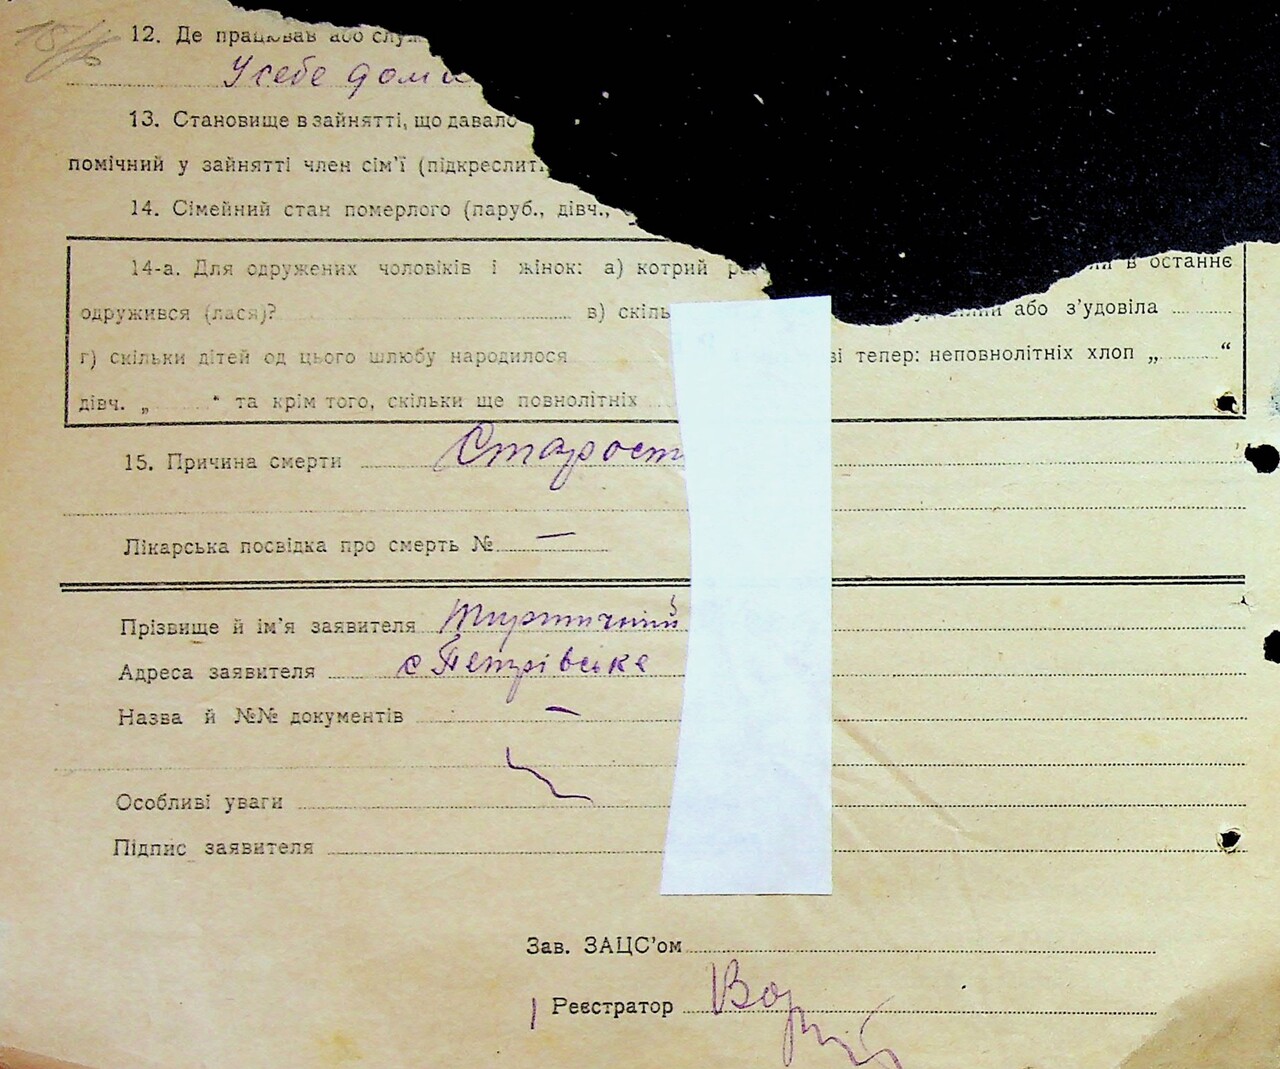 15/X
12. Де працював або служ
У себе дома
13. Становище в зайнятті, що давало
помічний у зайнятті член сім'ї (підкреслит
14. Сімейний стан померлого (паруб., дівч.,
14-а. Для одружених чоловіків і жінок: а) котрий в останнє
одружився (лася)? в) скіль або з'удовіла
г) скільки дітей од цього шлюбу народилося ві тепер: неповнолітніх хлоп „ “
дівч. „ “ та крім того, скільки ще повнолітніх
15. Причина смерти Старост
Лікарська посвідка про смерть № —
Прізвище й ім'я заявителя
Адреса заявителя с Петрівське
Назва й №№ документів —
Особливі уваги
Підпис заявителя
Зав. ЗАЦС'ом
Реєстратор